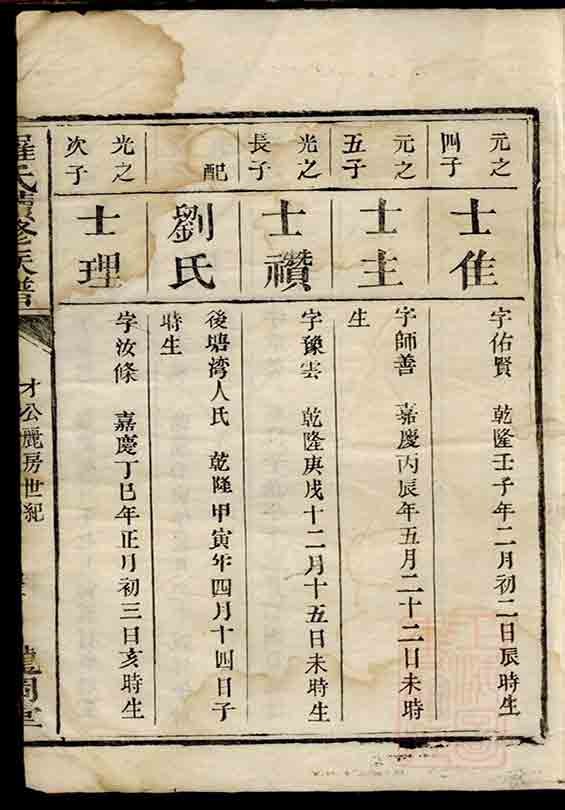 元之
四子
士隹
字佑賢　乾隆壬子年二月初二日辰時生
元之
五子
士主
字師善　嘉慶丙辰年五月二十二日未時
生
光之
長子
士禶
字豫雲　乾隆庚戌十二月十五日未時生
配
劉氏
後塘湾人氏　乾隆甲寅年四月十四日子
時生
光之
次子
士理
字汝條　嘉慶丁巳年正月初三日亥時生
羅氏續修族譜
才公麗房世紀